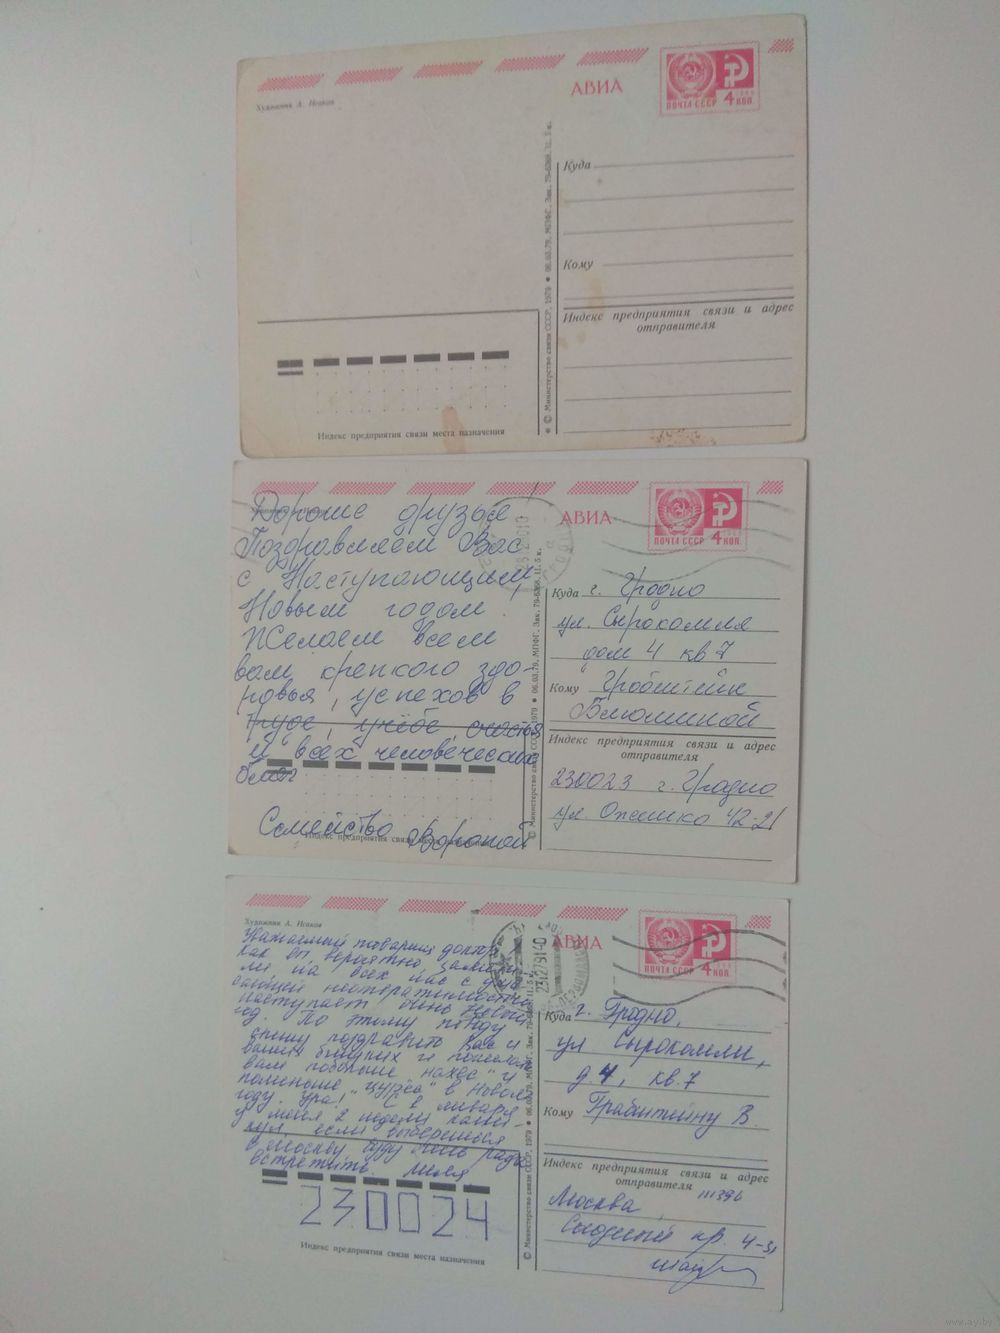 Художник А. Исаков
АВИА
ПОЧТА СССР 4 КОП.
1966
Куда
Кому
Индекс предприятия связи и адрес
отправителя
Индекс предприятия связи места назначения
© Министерство связи СССР, 1979 • 06.03.79. МПФГ. Зак. 79-6368. Ц. 5 к.
Дорогие друзья
Поздравляем Вас
с Наступающим,
Новым годом.
Желаем всем
вам крепкого здо-
ровья, успехов в
труде, учёбе, счастья
и всех человеческих
благ
Семейство
АВИА
ПОЧТА СССР 4 КОП.
Куда г. Гродно
ул. Сырокомля
дом 4 кв 7
Кому
Индекс предприятия связи и адрес
отправителя
230023 г. Гродно
ул. Ожешко 42-21
Индекс предприятия связи места назначения
© Министерство связи СССР, 1979 • 06.03.79. МПФГ. Зак. 79-6368. Ц. 5 к.
Художник А. Исаков
Уважаемый товарищ доктор
Как Вы, вероятно,
на всех нас с
неотвратимостью
наступает очень Новый
год. По этому поводу
спешу поздравить Вас и
ваших ближних и
вам побольше
поменьше в Новом
году. Ура! С 2 января
у меня 2 недели
если выберешься
в Москву, буду очень рада
встретить.
230024
Индекс предприятия связи места назначения
АВИА
ПОЧТА СССР 4 КОП.
Куда г. Гродно,
ул Сырокомли,
д. 4, кв. 7
Кому В.
Индекс предприятия связи и адрес
отправителя
111396
Москва
пр. 4-31
© Министерство связи СССР, 1979 • 06.03.79. МПФГ. Зак. 79-6368. Ц. 5 к.
www.ay.by